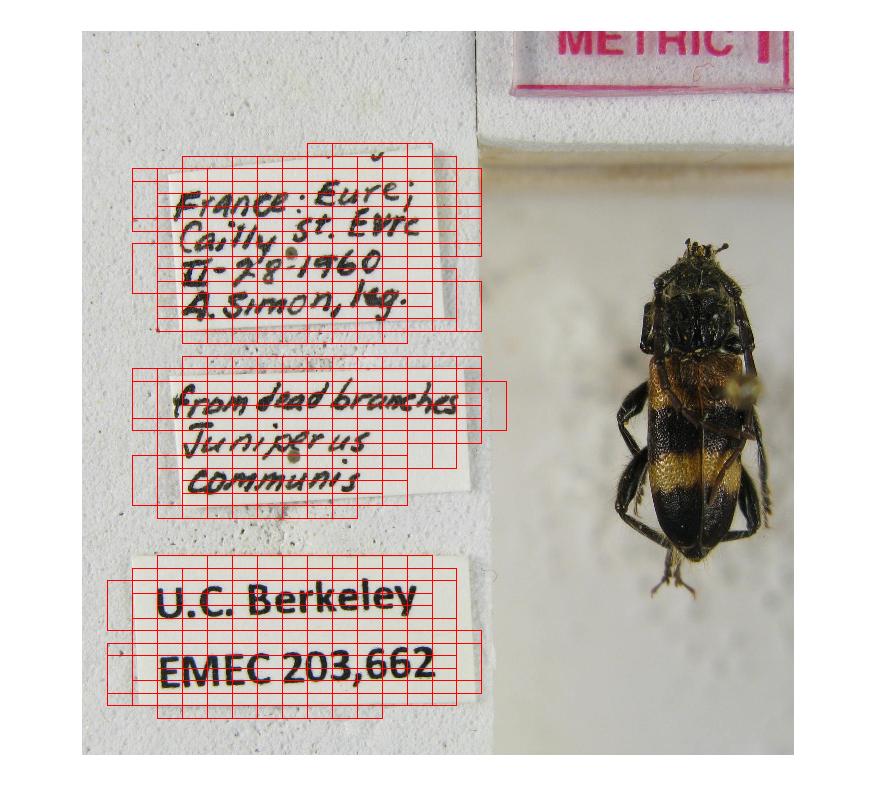 METRIC 1
France: Eure;
Cailly St. Eure
II-28-1960
A. Simon, leg.
from dead branches
Juniperus
communis
U.C. Berkeley
EMEC 203,662